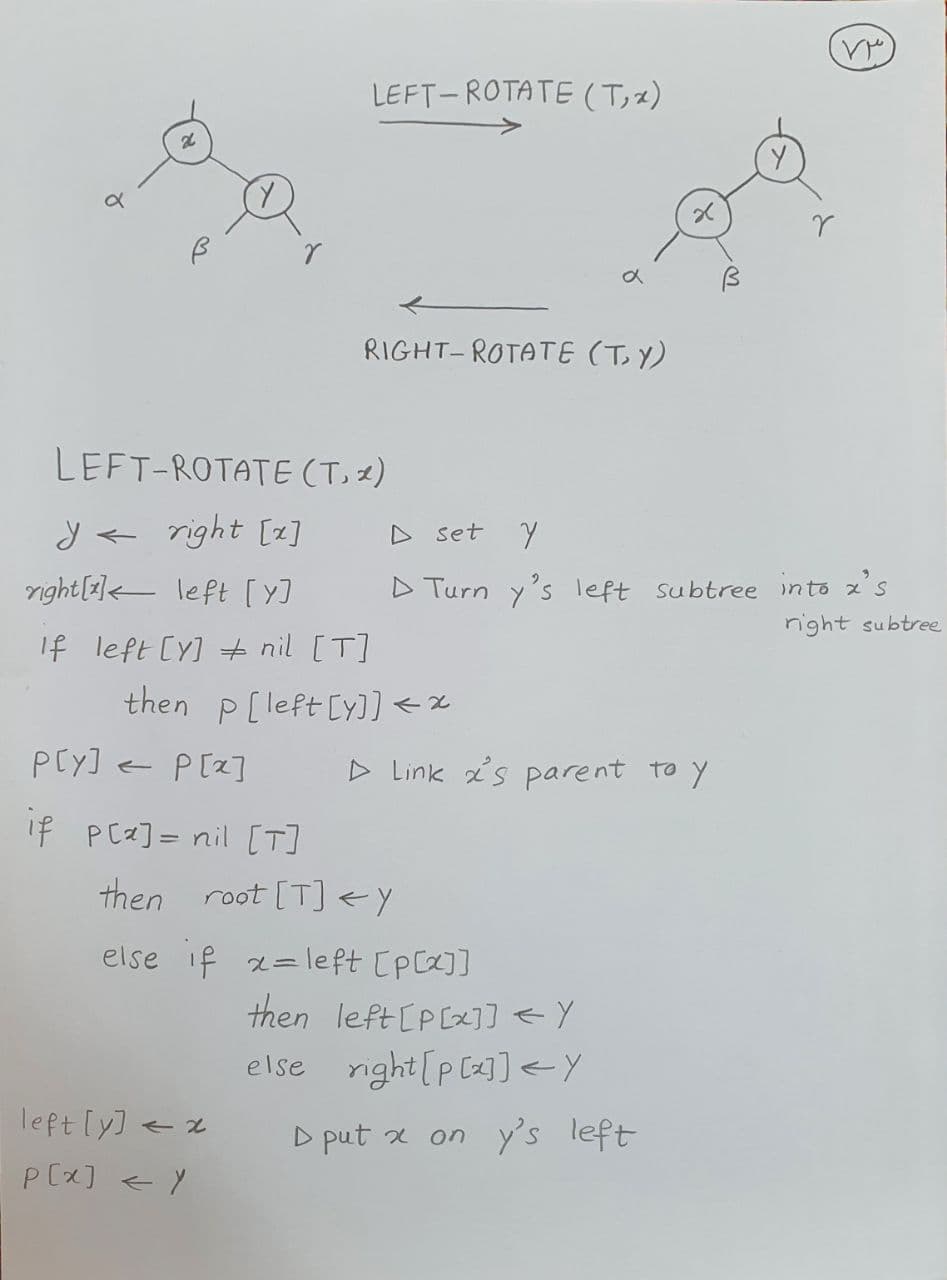 ۷۳
LEFT-ROTATE (T,x)
x
y
α
β
γ
y
x
γ
α
β
RIGHT-ROTATE (T,y)
LEFT-ROTATE (T,x)
y ← right [x] ▷ set y
right[x] ← left [y] ▷ Turn y's left subtree into x's
right subtree
if left [y] ≠ nil [T]
then p[left[y]] ← x
p[y] ← p[x] ▷ Link x's parent to y
if p[x] = nil [T]
then root [T] ← y
else if x = left [p[x]]
then left [p[x]] ← y
else right [p[x]] ← y
left [y] ← x ▷ put x on y's left
p[x] ← y